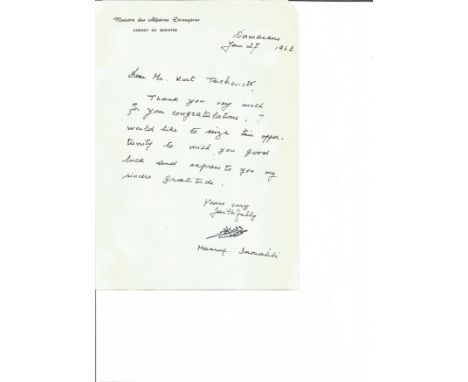 Ministre des Affaires Etrangères
CABINET DU MINISTRE
Damascus
Jan 27 1963
Dear Mr. Kurt
Thank you very much
for your congratulations. I
would like to seize this oppor-
tunity to wish you good
luck and express to you my
sincere gratitude.
Yours very
faithfully
Maarouf Daoualibi